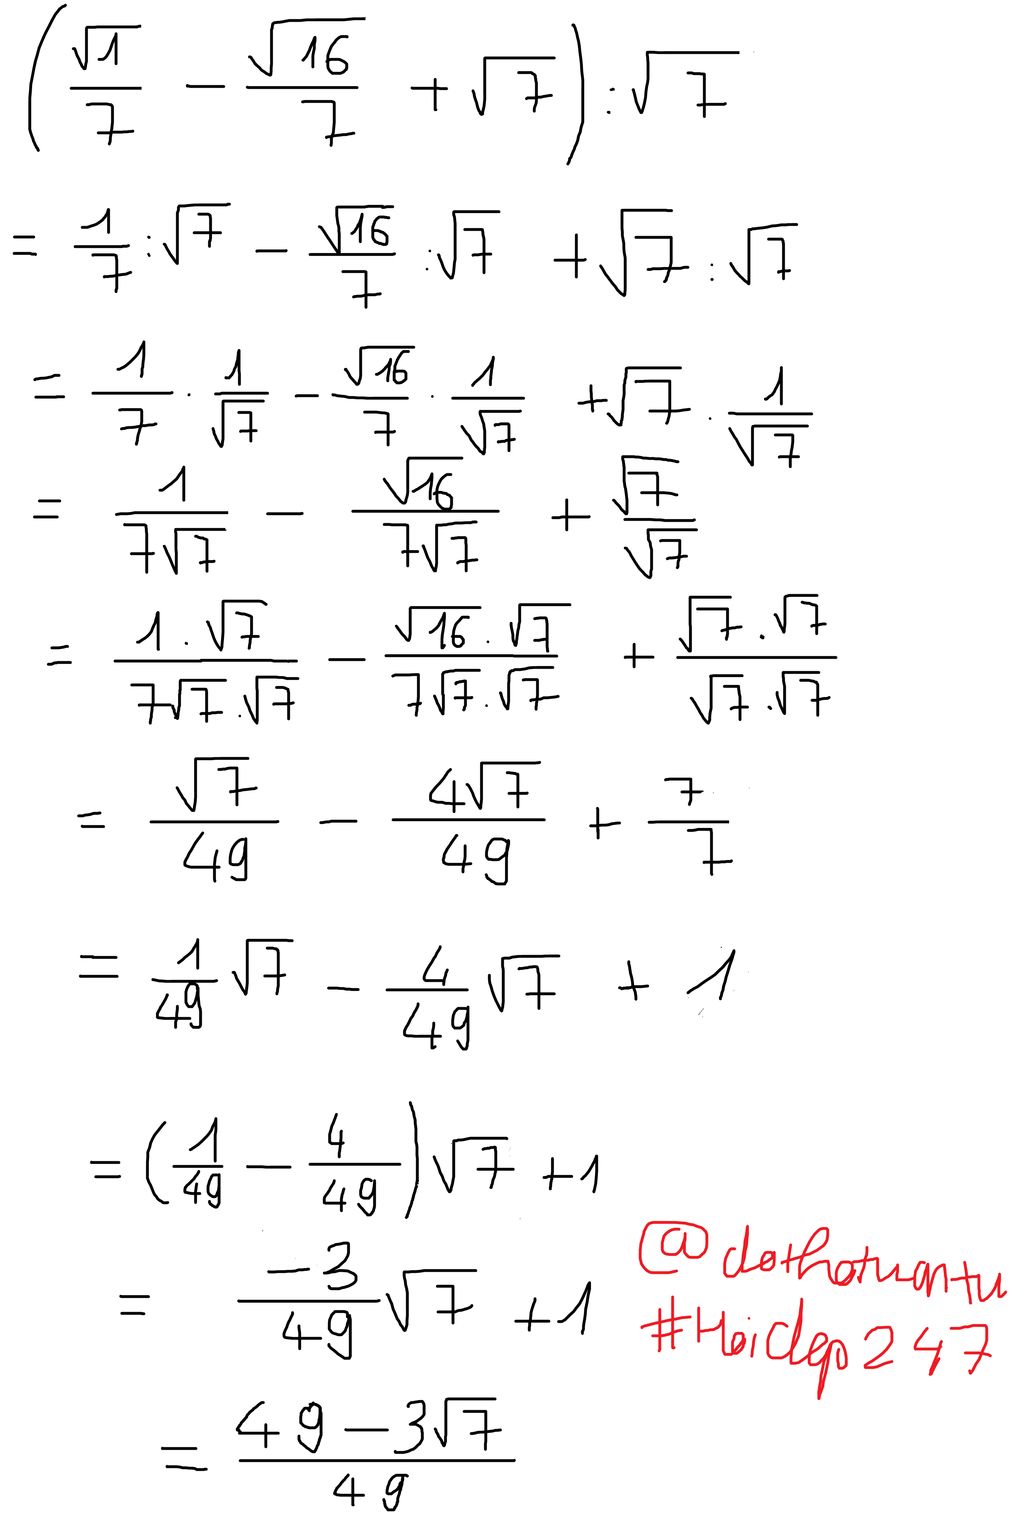 (√1/7 − √16/7 + √7) : √7
= 1/7 : √7 − √16/7 : √7 + √7 : √7
= 1/7 . 1/√7 − √16/7 . 1/√7 + √7 . 1/√7
= 1/7√7 − √16/7√7 + √7/√7
= 1.√7/7√7.√7 − √16.√7/7√7.√7 + √7.√7/√7.√7
= √7/49 − 4√7/49 + 7/7
= 1/49 √7 − 4/49 √7 + 1
= (1/49 − 4/49) √7 + 1
= −3/49 √7 + 1
= 49 − 3√7/49
@dothotuantu
#Hoidap247